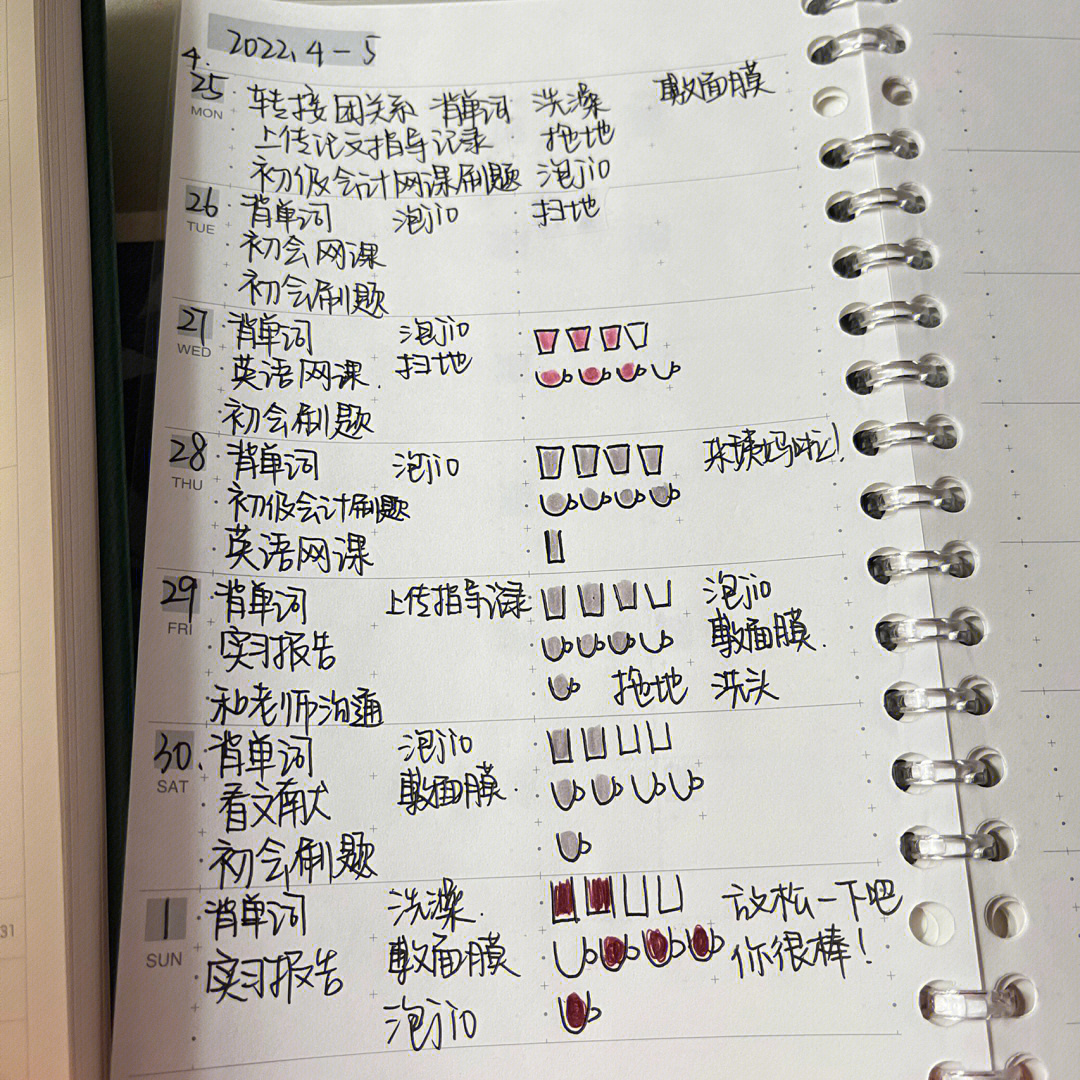 2022.4-5
4.
25 转接团关系 背单词 洗澡 敷面膜
MON 上传论文指导记录 拖地
初级会计网课刷题 泡jio
26 背单词 泡jio 扫地
TUE 初会网课
初会刷题
27 背单词 泡jio
WED 英语网课 扫地
初会刷题
28 背单词 泡jio 来姨妈啦!
THU 初级会计刷题
英语网课
29 背单词 上传指导记录 泡jio
FRI 实习报告 敷面膜
和老师沟通 拖地 洗头
30. 背单词 泡jio
SAT 看文献 敷面膜
初会刷题
1 背单词 洗澡 放松一下吧
SUN 实习报告 敷面膜 你很棒!
泡jio
31